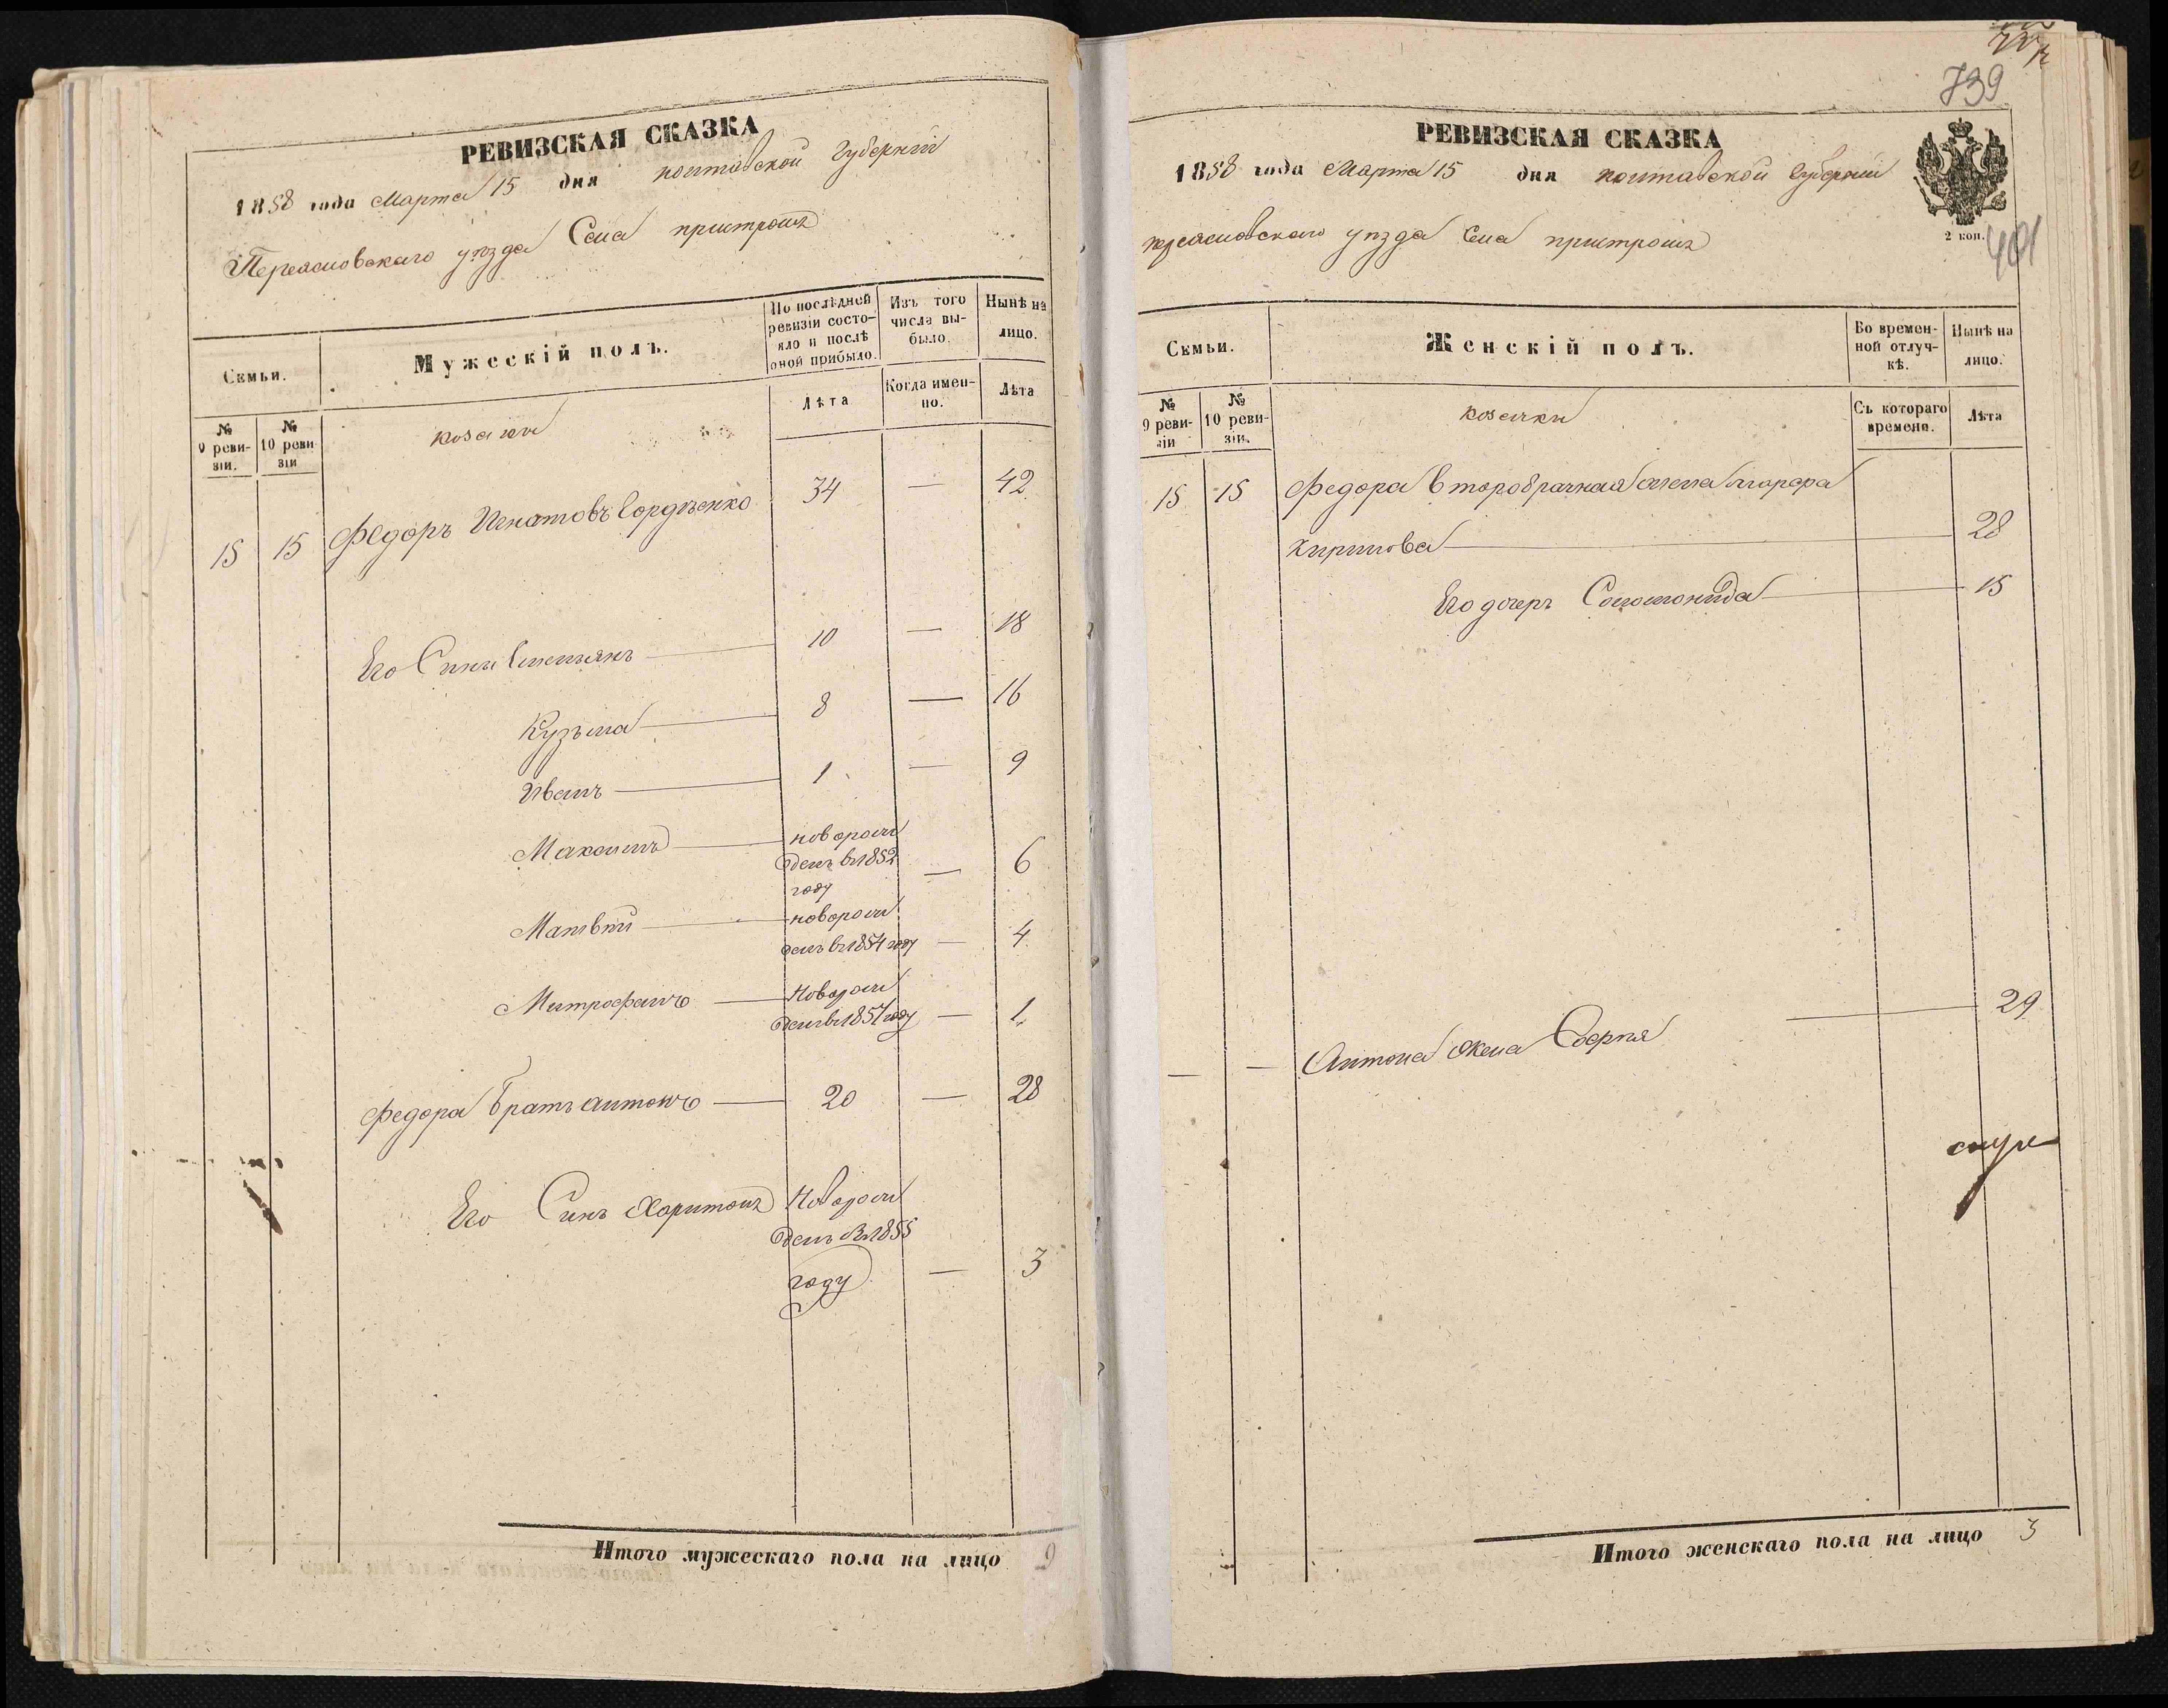 РЕВИЗСКАЯ СКАЗКА
1858 года Марта 15 дня полтавской Губерніи
Переяславского уѣзда Села пристромъ
Семьи.
Мужескій полъ.
По послѣдней ревизіи состояло и послѣ оной прибыло.
Изъ того числа выбыло.
Нынѣ на лицо.
№ 9 ревизіи.
№ 10 ревизіи
козаки
Лѣта
Когда именно.
Лѣта
15 15 Федоръ Игнатовъ Сердѣенко 34 — 42
Его Сини Емельянъ 10 — 18
Кузьма 8 — 16
Иванъ 1 — 9
Максимъ новорож
денъ въ 1852
году — 6
Матвѣй новорож
денъ въ 1854 году — 4
Митрофанъ Новорож
денъ въ 1857 году — 1
Федора братъ Антонъ 20 — 28
Его Синъ Харитонъ Новорож
денъ въ 1855
году — 3
Итого мужескаго пола на лицо 9
739
401
РЕВИЗСКАЯ СКАЗКА
1858 года Марта 15 дня полтавской Губерніи
переяславского уѣзда Села пристромъ
2 коп.
Семьи.
Женскій полъ.
Во временной отлучкѣ.
Нынѣ на лицо.
№ 9 ревизіи
№ 10 ревизіи.
козачки
Съ котораго времени.
Лѣта
15 15 Федора второбрачная жена Марфа
Кирилова 28
Его дочерь Соломонида 15
— — Антона Жена Софія 29
Итого женскаго пола на лицо 3